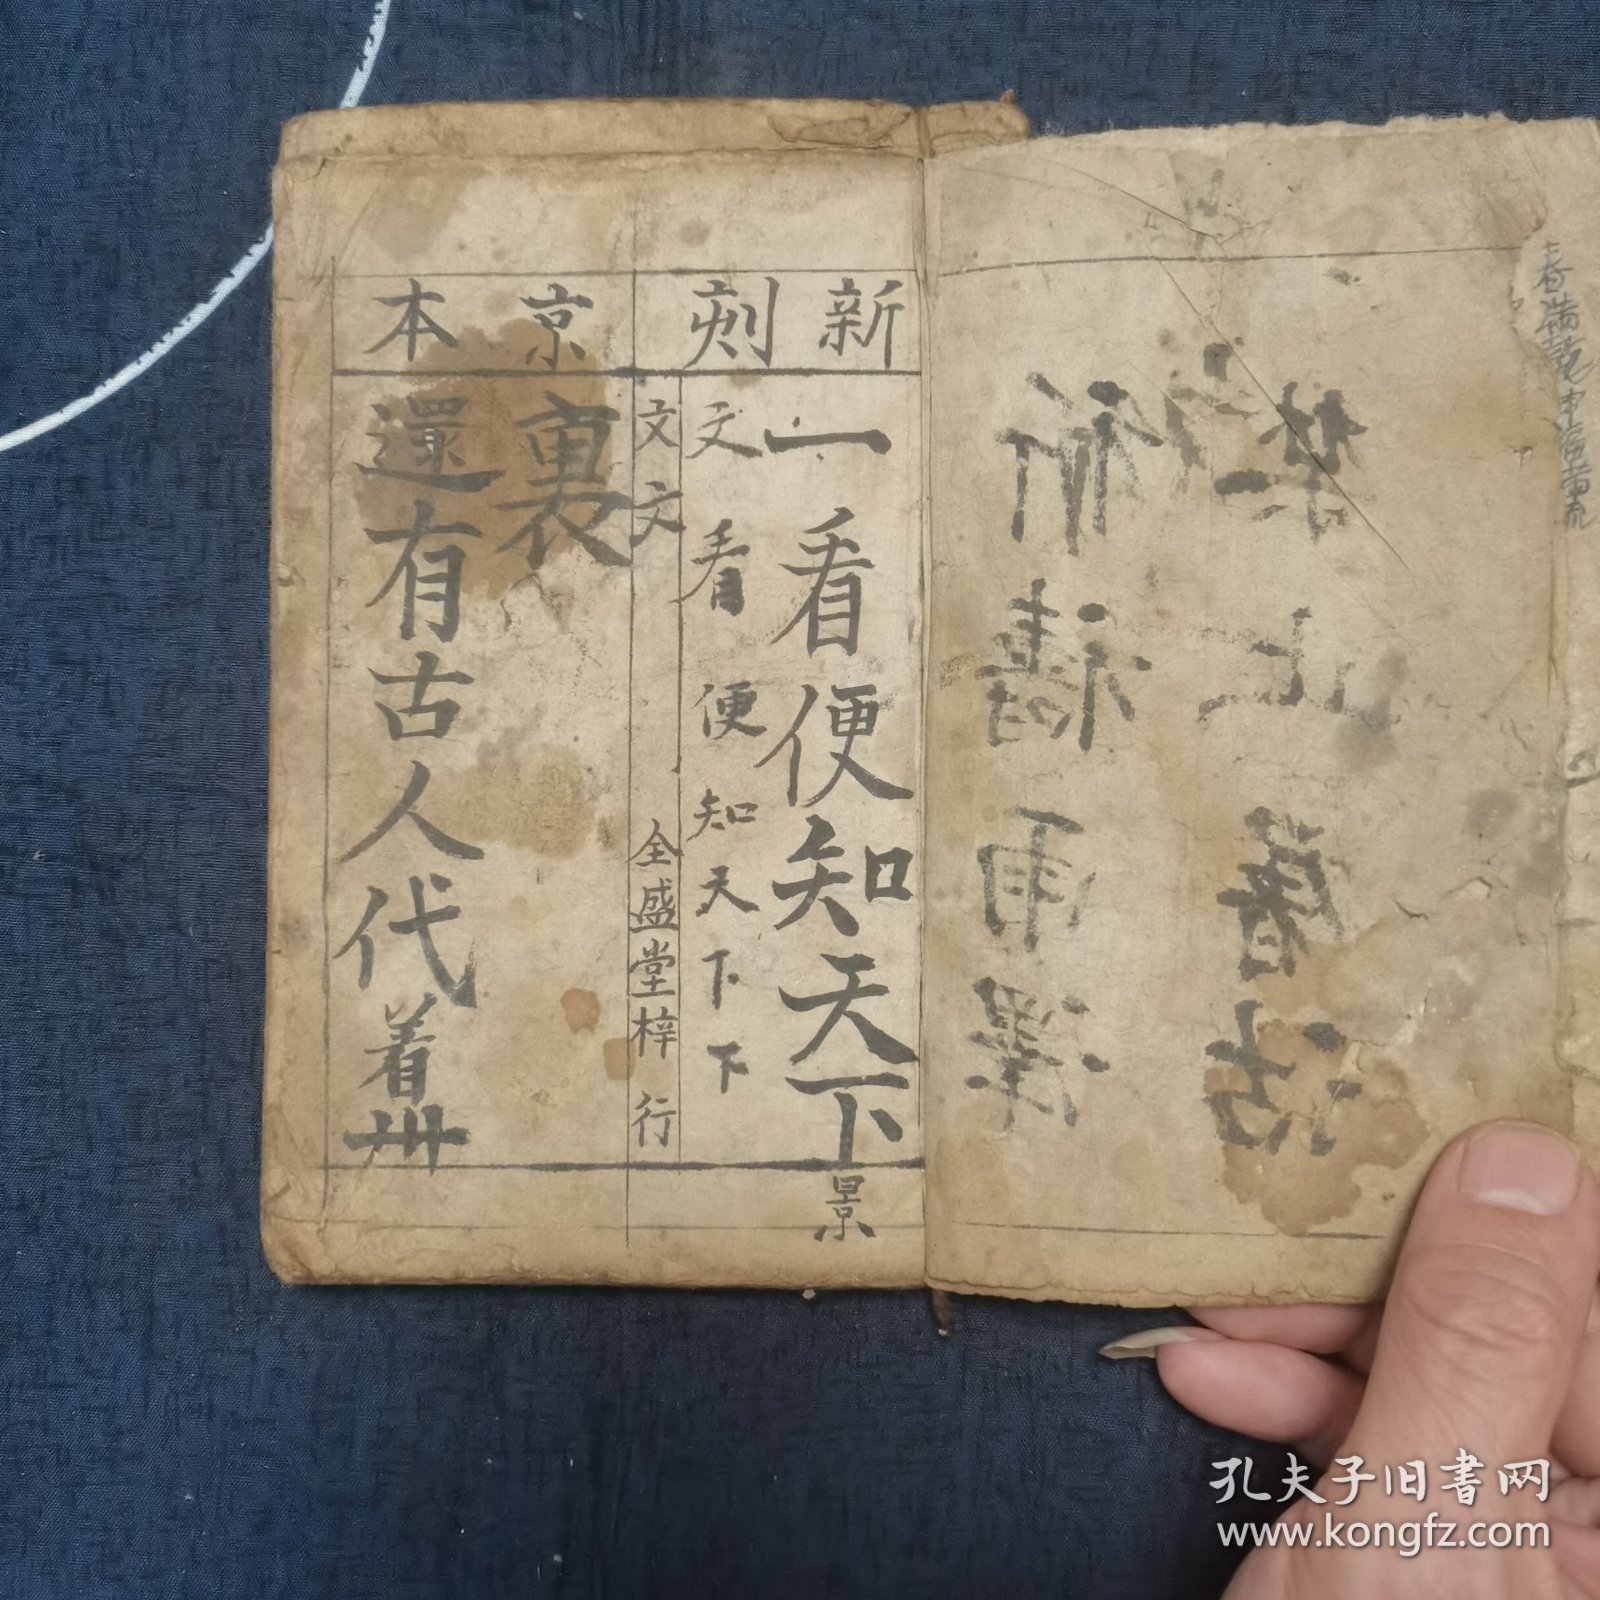 新刻京本
一看便知天下景
文看便知天下下
文文
全盛堂梓行
裏
還有古人代着卅
祈禱雨澤
禁止屠沽
孔夫子旧书网
www.kongfz.com